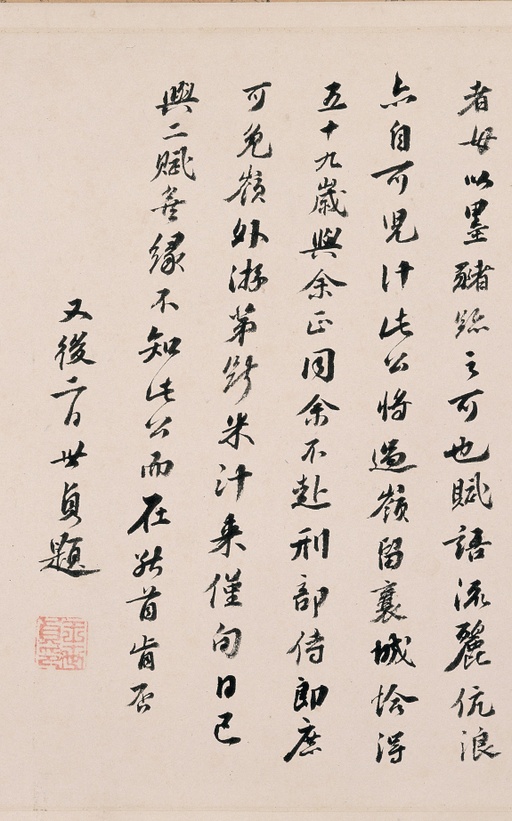 者毋以墨豬跡之可也賦語流麗伉浪
亦自可兒計此公將過嶺留襄城恰得
五十九歲與余正同余不赴刑部侍郎庶
可免嶺外游第斷米汁來僅旬日已
與二賦無緣不知此公而在能首肯否
又後二日世貞題